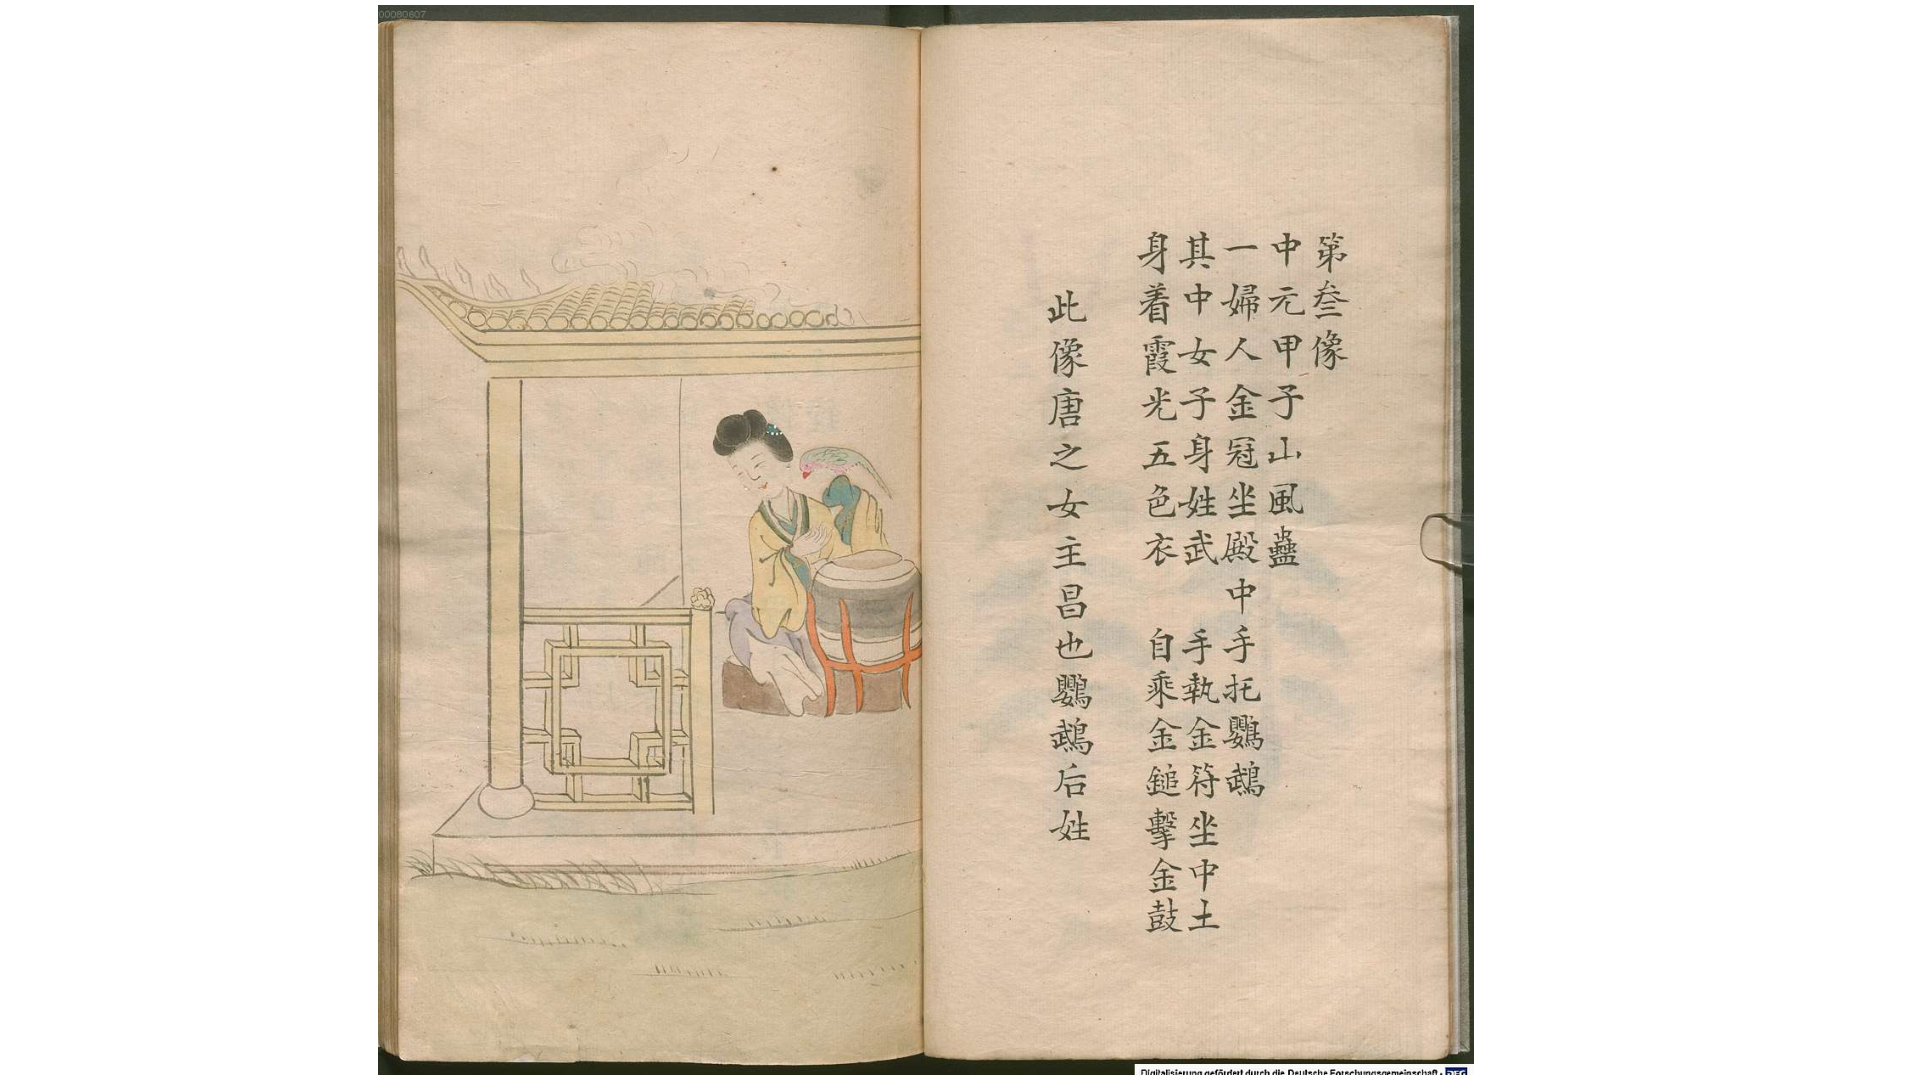 第叁像
中元甲子山風蠱
一婦人金冠坐殿中手托鸚鵡
其中女子身姓武 手執金符坐中土
身着霞光五色衣 自乘金鎚擊金鼓
此像唐之女主昌也鸚鵡后姓
00090807
Digitalisierung gefördert durch die Deutsche Forschungsgemeinschaft - DFG